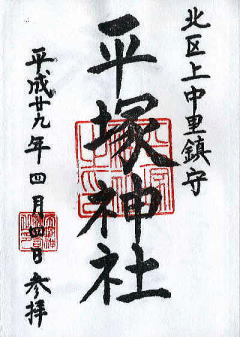 北区上中里鎮守
平塚神社
平成廿九年四月 日参拝